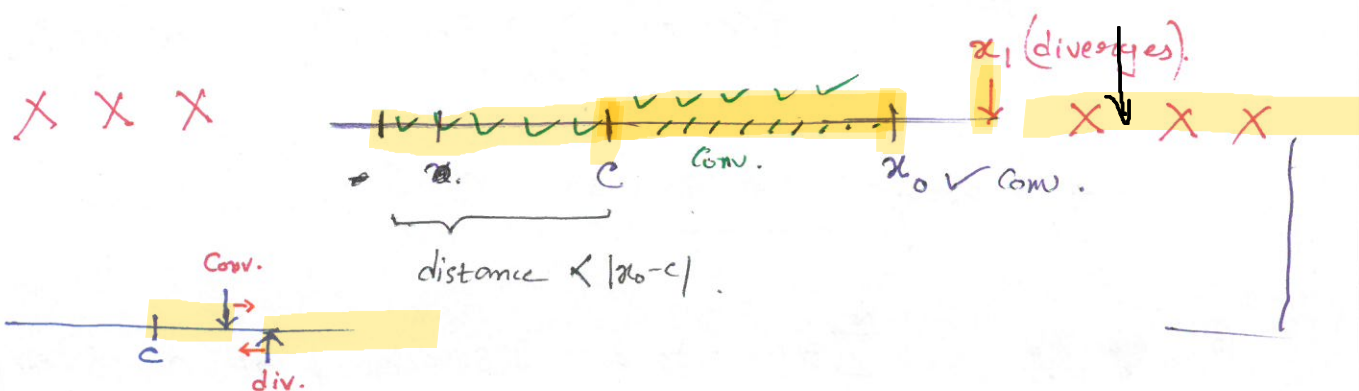 x₁ (diverges).
X X X ✓ ✓ ✓ ✓ ✓ ✓ ✓ ✓ ✓ ✓ X X X
C Conv. x₀ ✓ Conv.
distance < |x₀-c|.
Conv.
C
div.